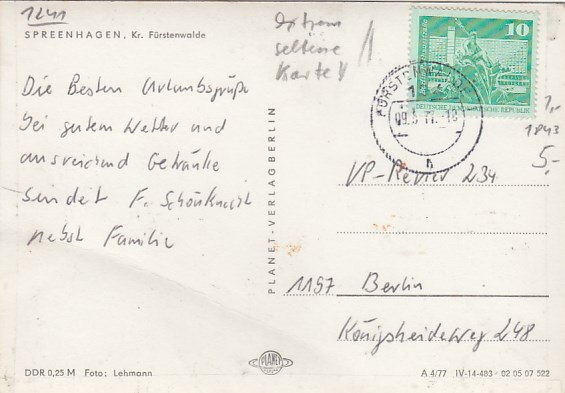 1241
SPREENHAGEN, Kr. Fürstenwalde
extrem
seltene
Karte
Die Besten Urlaubsgrüße
bei gutem Wetter und
ausreichend Getränke
sendet F. Schönknecht
nebst Familie
PLANET-VERLAG BERLIN
10
DEUTSCHE DEMOKRATISCHE REPUBLIK
1,-
1843
5,-
VP-Revier 234
1197 Berlin
Königsheideweg 248
DDR 0,25 M Foto: Lehmann
PLANET
A 4/77 IV-14-483 - 02 05 07 522